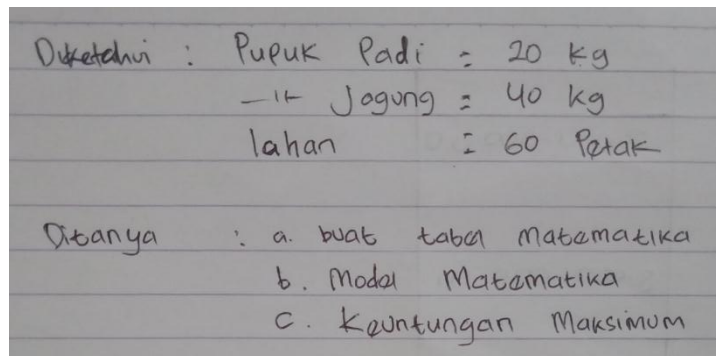 Diketahui : Pupuk Padi = 20 kg
–〃– Jagung = 40 kg
lahan = 60 Petak
Ditanya : a. buat tabel matematika
b. Model Matematika
c. Keuntungan Maksimum